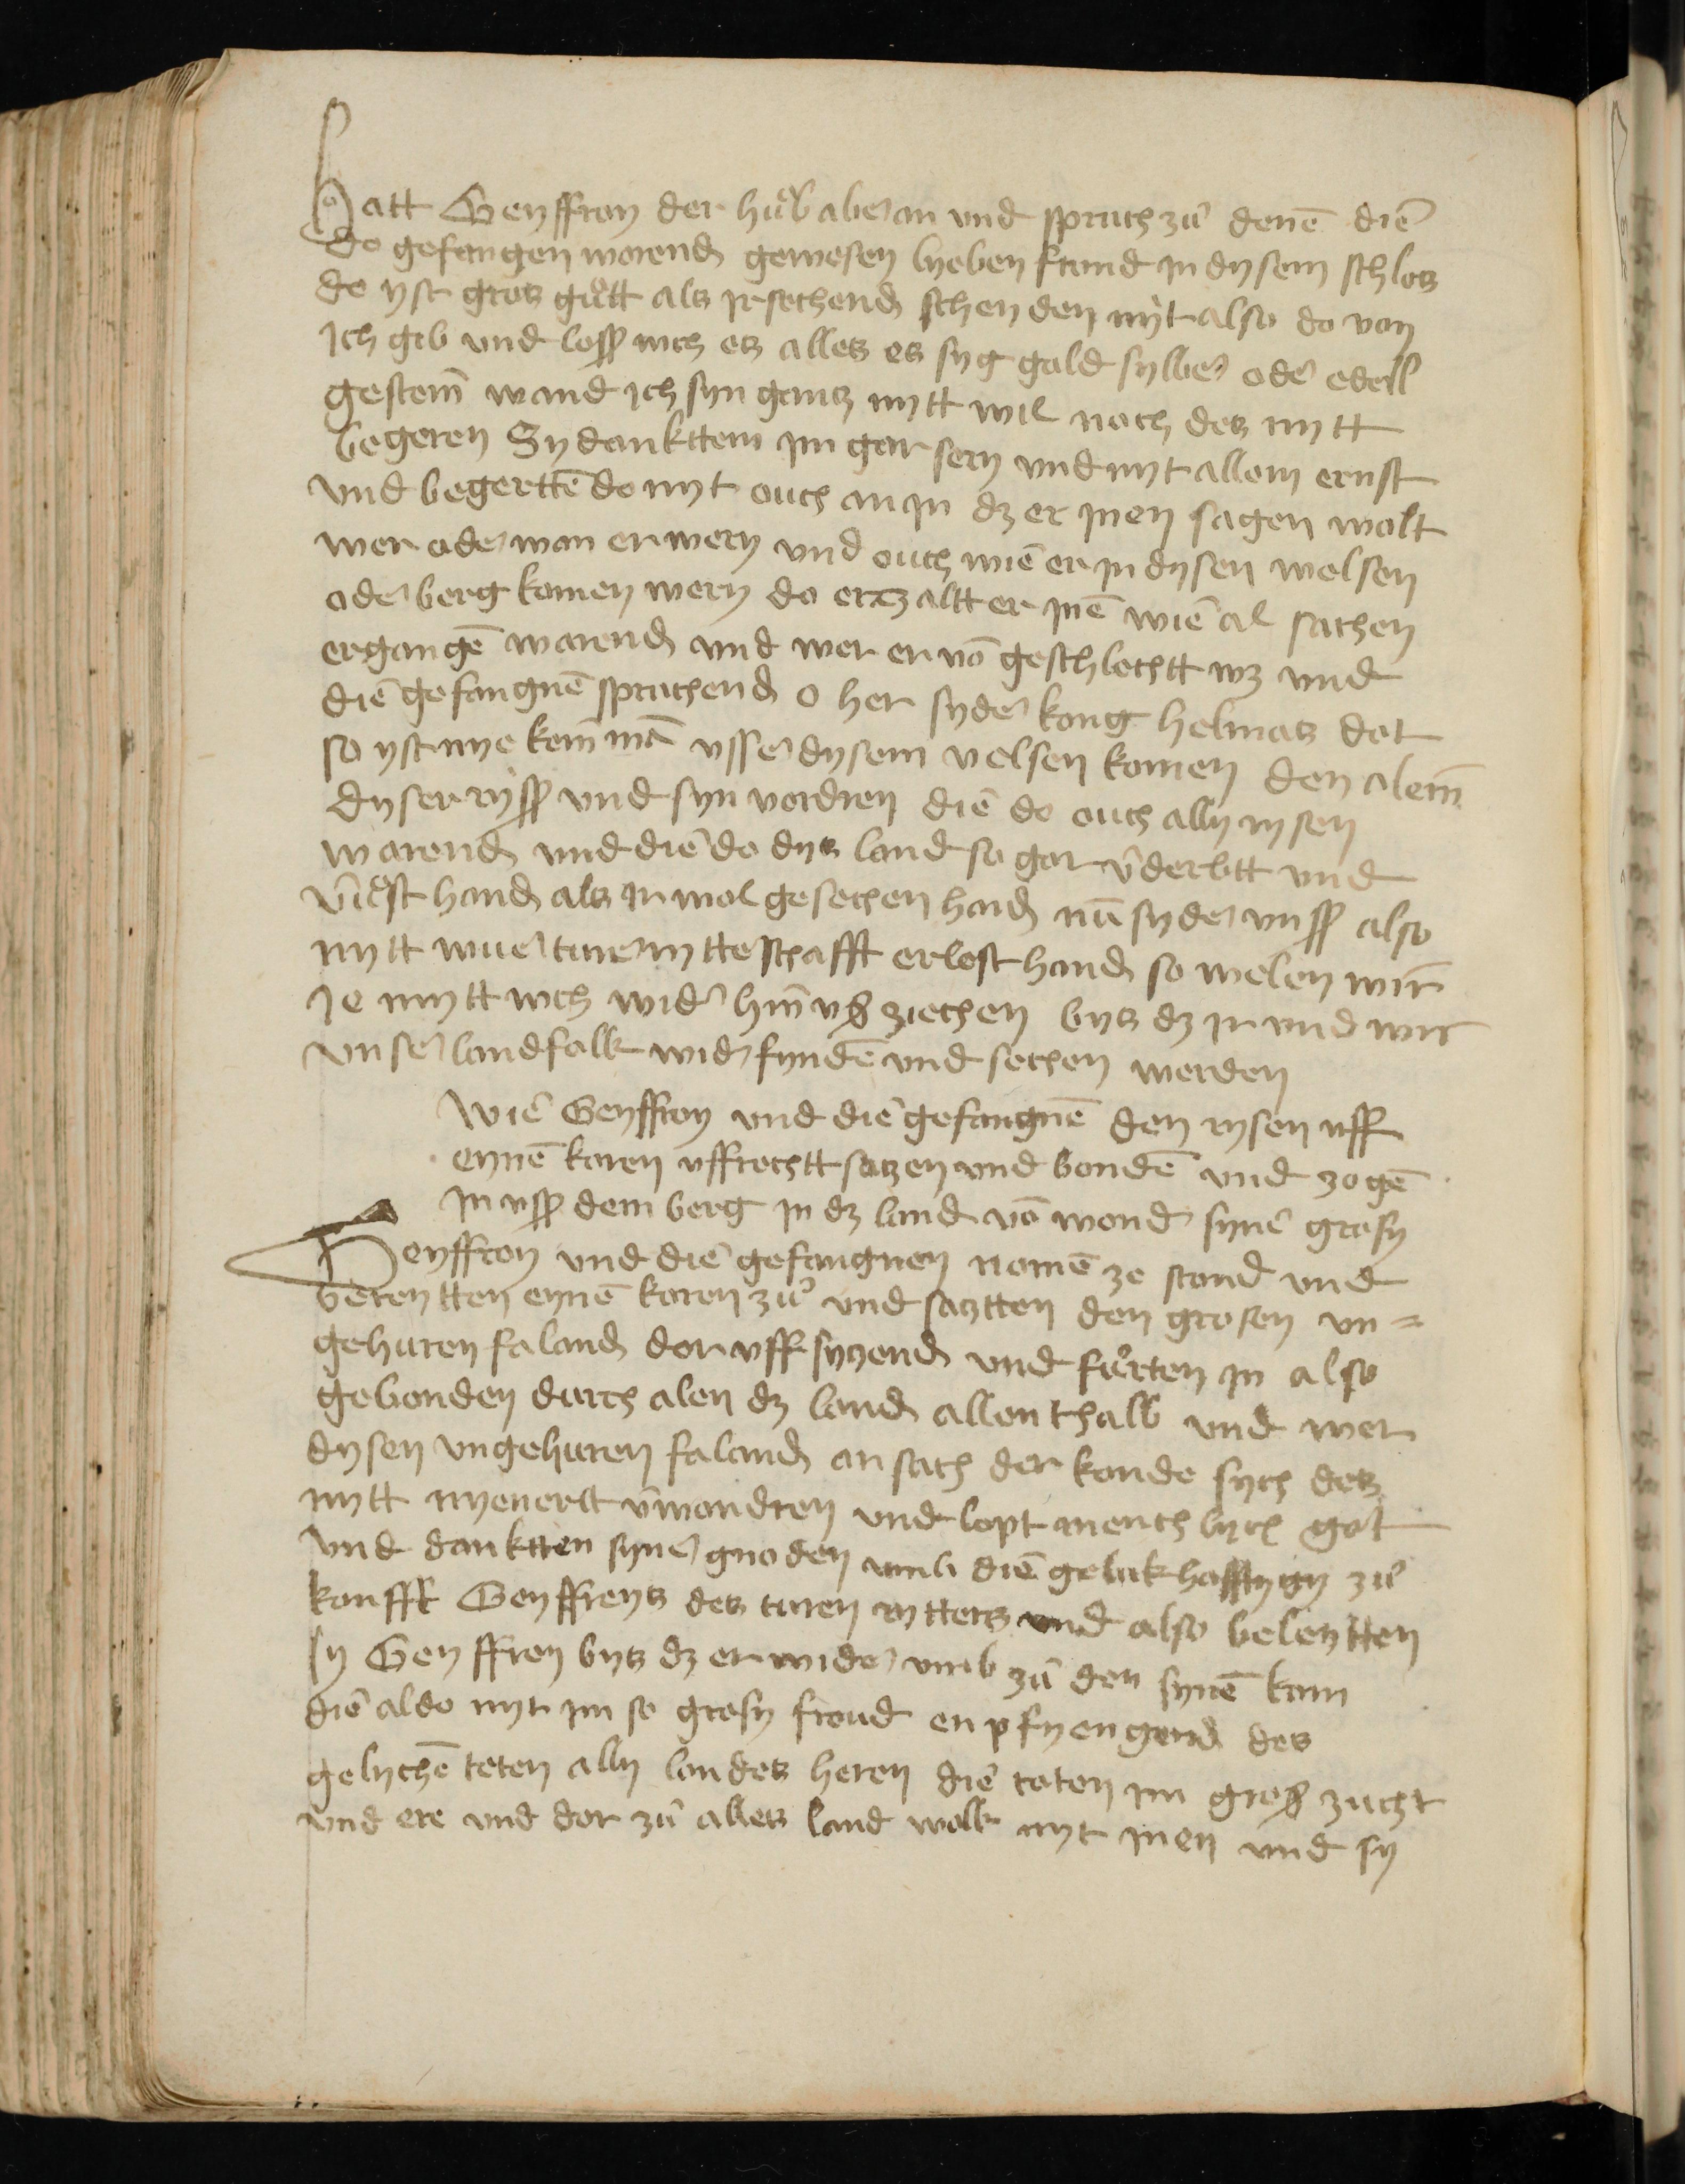 Hatt Geyffroy der huͦb aber an vnd sprach zuͦ denē diē
do gefangen warend gewesen lyeben frand jn dysem schlos
do yst gros guͦtt als jr sechend schenden nyt also do von
jch gib vnd loſſ vch es alles es syg gold sylber oder edell
gesteīn wand jch syn gantz nytt wil noch des nytt
begeren Sy dankttem jm gar sery vnd myt allem ernst
vnd begerttē do myt ouch an jn dz er jnen sagen wolt
wer oder wan er wery vnd ouch wiē er jn dysen welsen
oder berg komen wery do erzaltt er jnē wiē al sachen
ergangē warend vnd wer er vō geschlechtt wz vnd
diē gefangnē sprachend o her syder kong helmas dot
so yst nye keīn mā vsser dysem velsen komen den aleīn
dyser ryſſ vnd syn vordren diē do ouch ally rysen
warend vnd diē do dys land so gar v̄derbtt vnd
v̄woͤst hand als jr wol gesechen hand nū syder vnſſ also
mytt vwer turer rytterschafft erlost hand so welen wir
je mytt vch wider hīn vß ziechen bys dz jr vnd wir
vnser landfolk wider fyndē vnd sechen werden
Wiē Geyffroy vnd diē gefangnē den rysen vff
eynē karen vffrechtt satzen vnd bondē vnd zogē
jn vſſ dem berg jn dz land vō wond syner grosy
Geyffroy vnd diē gefangnen nomē ze stond vnd
bereytten eynē karen zuͦ vnd satztten den grosen vn=
gehuren faland dor vff sytzend vnd fuͦrten jn also
gebonden durch alen dz land allenthalb vnd wer
dysen vngehuren faland an sach der konde sych des
nytt nyenertt v̄wondren vnd lopt mench lych got
vnd danktten syner gnoden vmb diē geluk hafftygy zuͦ
konfft Geyffroys des turen rytters vnd also beleytten
sy Geyffroy bys dz er wider vmb zuͦ den synē kam
diē aldo myt jm so grosy froud enpfyengend des
gelychē teten ally landes heren diē toten jm groß zucht
vnd ere vnd dor zuͦ alles land wolk myt jnen vnd sy